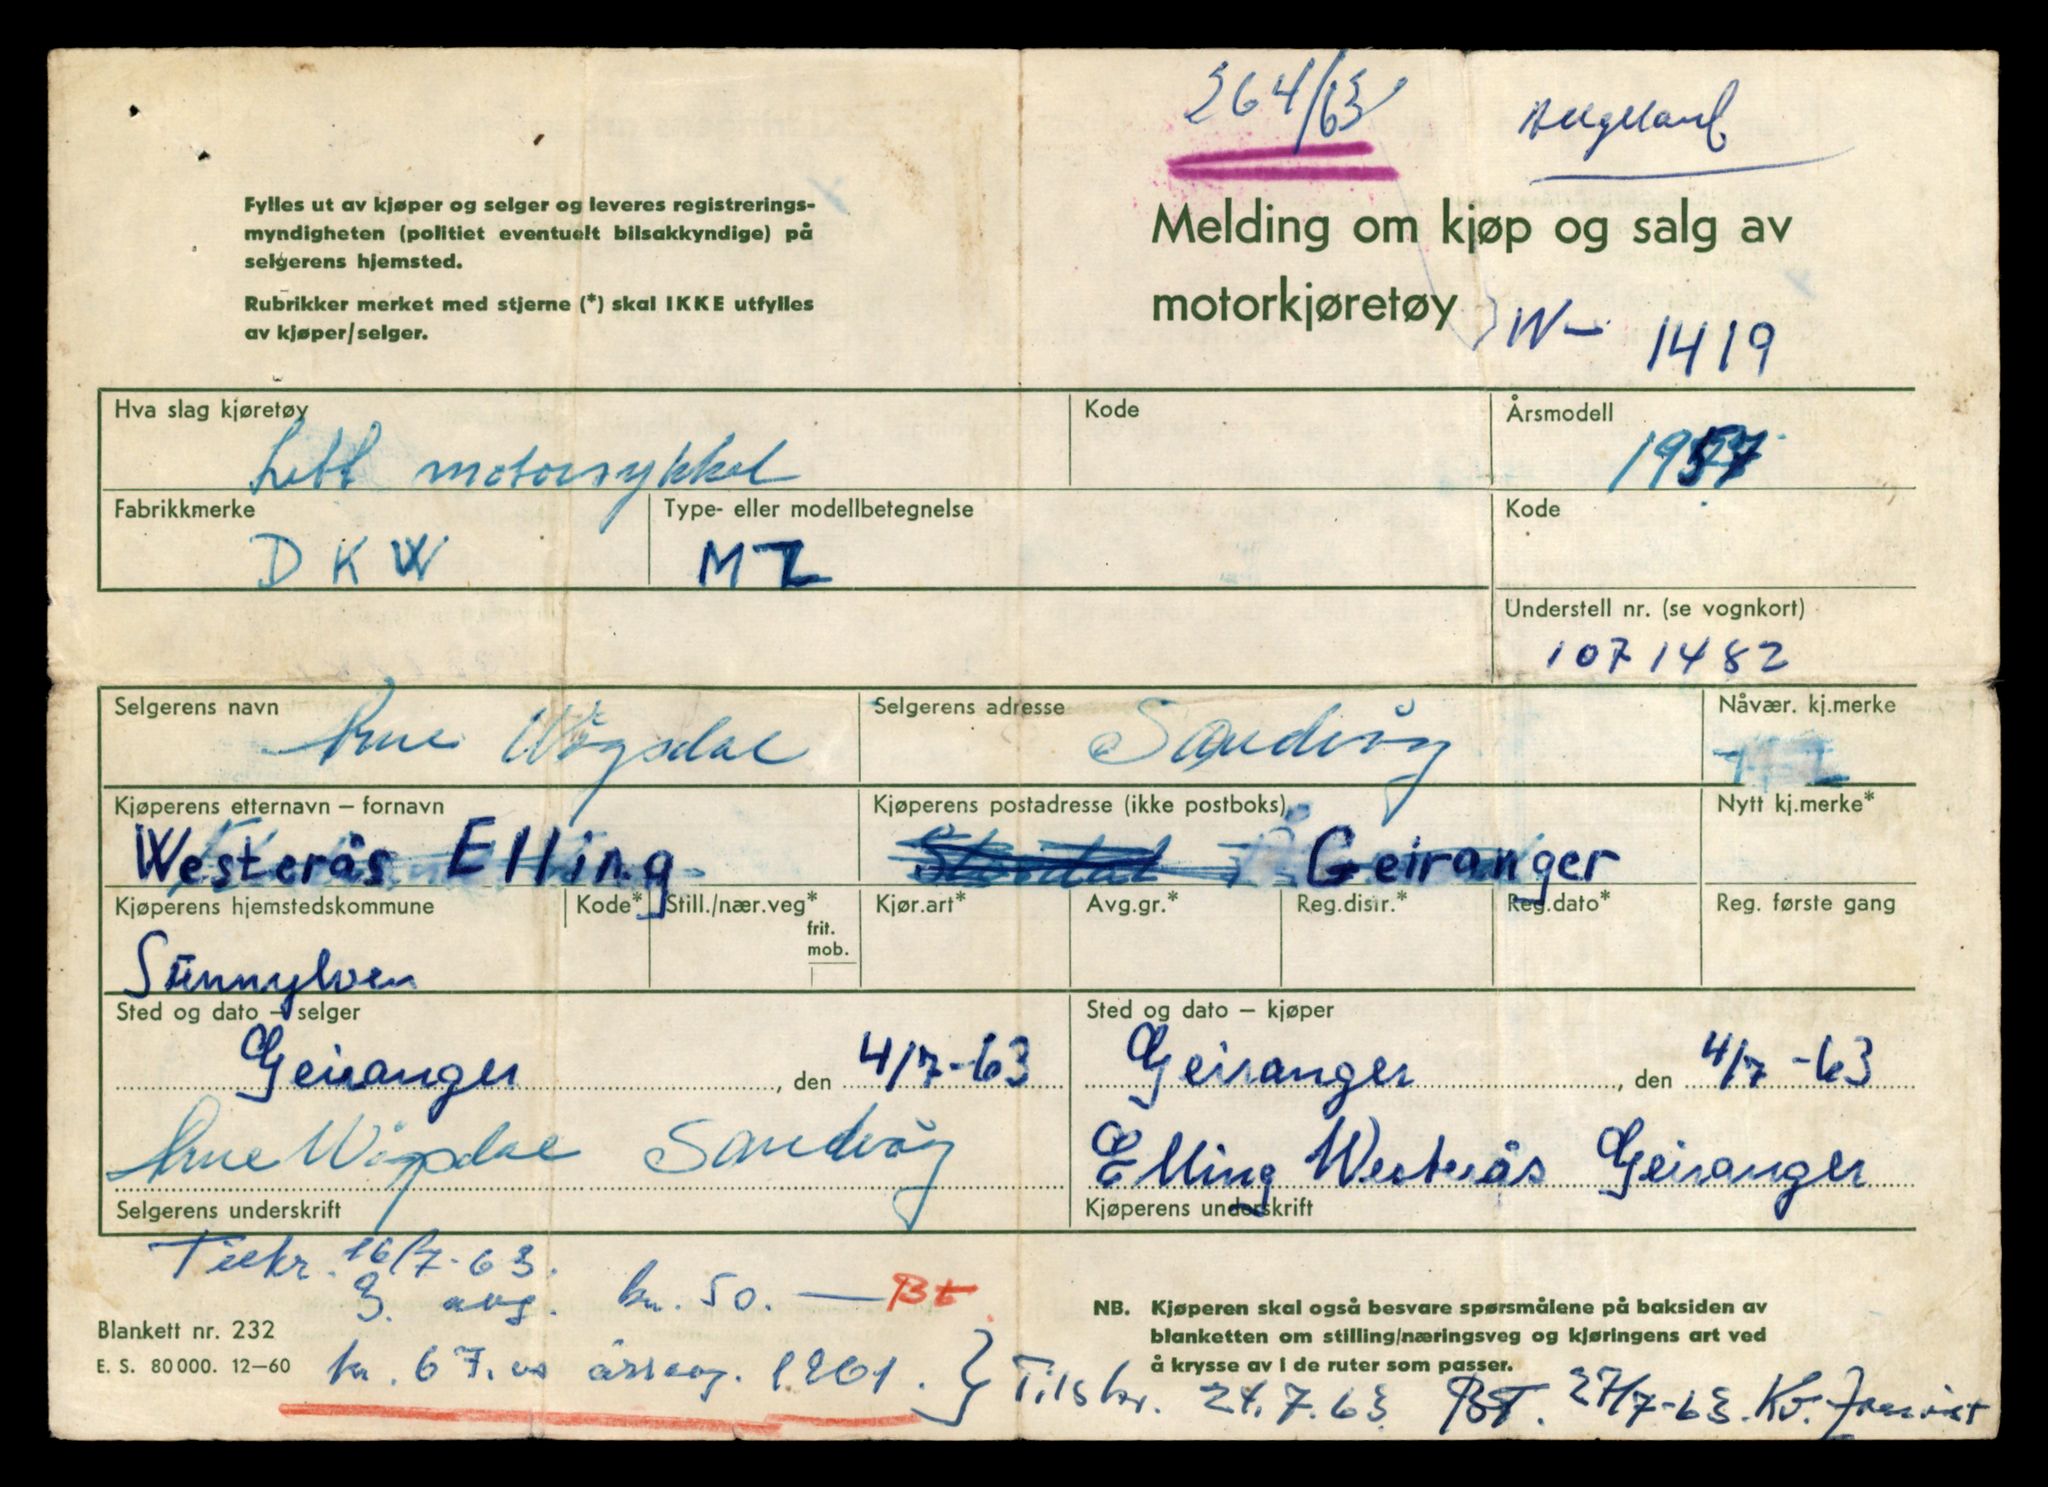 264/63
Helgeland
Fylles ut av kjøper og selger og leveres registrerings-
myndigheten (politiet eventuelt bilsakkyndige) på
selgerens hjemsted.
Rubrikker merket med stjerne (*) skal IKKE utfylles
av kjøper/selger.
Melding om kjøp og salg av
motorkjøretøy
W- 1419
Hva slag kjøretøy
Lett motorsykkel
Kode
Årsmodell
1957
Fabrikkmerke
DKW
Type- eller modellbetegnelse
MZ
Kode
Understell nr. (se vognkort)
1071482
Selgerens navn
Arne Wågsdal
Selgerens adresse
Sandvåg
Nåvær. kj.merke
Kjøperens etternavn – fornavn
Westerås Elling
Kjøperens postadresse (ikke postboks)
Geiranger
Nytt kj.merke*
Kjøperens hjemstedskommune
Sunnylven
Kode*
Still./nær.veg*
frit.
mob.
Kjør.art*
Avg.gr.*
Reg.distr.*
Reg.dato*
Reg. første gang
Sted og dato – selger
Geiranger, den 4/7-63
Arne Wågsdal Sandvåg
Selgerens underskrift
Sted og dato – kjøper
Geiranger, den 4/7-63
Elling Westerås Geiranger
Kjøperens underskrift
Tilskr. 16/7-63.
3. avg. kr. 50. — Bt.
Blankett nr. 232
E. S. 80000. 12–60
kr. 67. årsavg. 1961. } Tilskr. 24.7.63
NB. Kjøperen skal også besvare spørsmålene på baksiden av
blanketten om stilling/næringsveg og kjøringens art ved
å krysse av i de ruter som passer.
BT. 27/7-63. Kv.